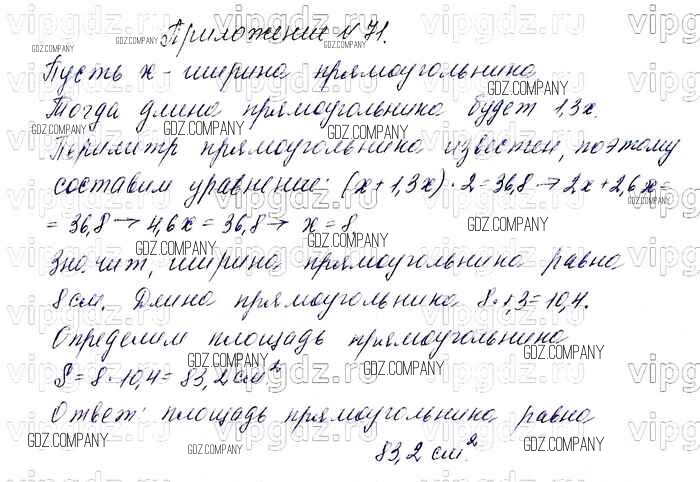 Приложение № 71.
Пусть x - ширина прямоугольника
Тогда длина прямоугольника будет 1,3x.
Периметр прямоугольника известен, поэтому
составим уравнение: (x+1,3x)·2=36,8→2x+2,6x=
=36,8→4,6x=36,8→ x=8.
Значит, ширина прямоугольника равна
8 см. Длина прямоугольника 8·1,3=10,4.
Определим площадь прямоугольника
S=8·10,4=83,2 см²
Ответ: площадь прямоугольника равна
83,2 см².
vipgdz.ru
GDZ.COMPANY